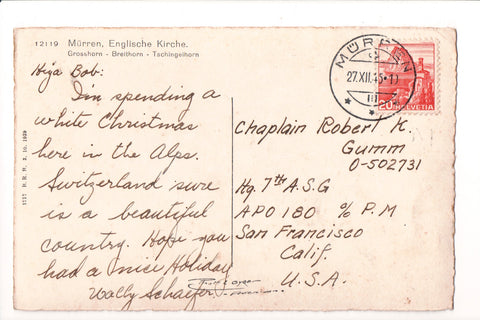 12119 Mürren, Englische Kirche.
Grosshorn - Breithorn - Tschingelhorn
Hiya Bob:
I'm spending a
white Christmas
here in the Alps.
Switzerland sure
is a beautiful
country. Hope you
had a nice Holiday
Wally Schaefer
1117 B.R.N. 3. 10. 1939
MÜRREN
27.XII.45
20 HELVETIA
Chaplain Robert K.
Gumm
O-502731
Hq. 7th A.S.G
APO 180 % P.M
San Francisco
Calif.
U.S.A.